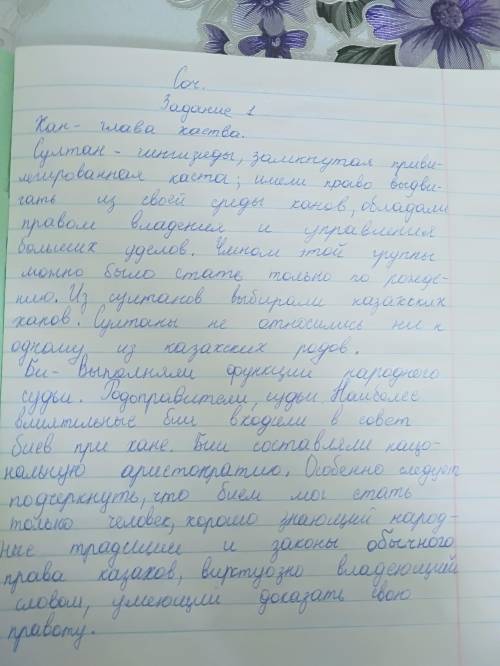 Соч.
Задание 1
Хан - глава ханства.
Султан - чингизиды, замкнутая приви-
легированная каста; имели право выдви-
гать из своей среды ханов, обладали
правом владения и управления
больших уделов. Членом этой группы
можно было стать только по рожде-
нию. Из султанов выбирали казахских
ханов. Султаны не относились ни к
одному из казахских родов.
Би - Выполняли функции народного
судьи. Родоправители, судьи. Наиболее
влиятильные бии входили в совет
биев при хане. Бии составляли нацо-
нольную аристократию. Особенно следует
подчеркнуть, что бием мог стать
только человек, хорошо знающий народ-
ные традиции и законы обычного
права казахов, виртуозно владеющий
словом, умеющий доказать свою
правоту.